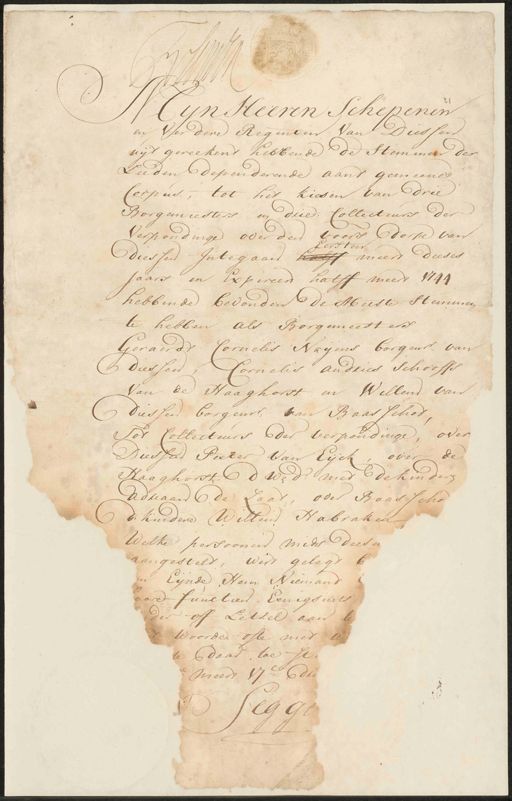 Mijn Heeren Schepenen
en verdere Regenten van Diessen
uijt gereekent hebbende de Stemmen der
Leeden dependerende aant gemeene
Corpus, tot het kiesen van drie
Borgemeesters en drie Collecteurs der
Verpondinge over den voors dorpe van
Diessen Integaan halff eersten meert deeses
jaars en Expireen halff meert 1744
hebbende bevonden de Meeste Stemmen
te hebben als Borgemeesters
Geraerdt Cornelis Naijens borgers van
Diessen, Cornelis andries Schoeffs
van de Haaghorst en Willem van
Diessen borgers van Baasschot,
Tot Collecteurs der verpondinge, over
Diessen Peeter van Eijck, over de
Haaghorst d Wed met dekinders
Adriaan de Laat, over Baasscho
d kindere Willem Habraken
Welke persoonen mits deesen
aangestelt, wert gelast
Eijnde Hem Niemand
functien Eenigsints
off Letsel aan
woorden ofte met
daad toe
meert 17
Segge